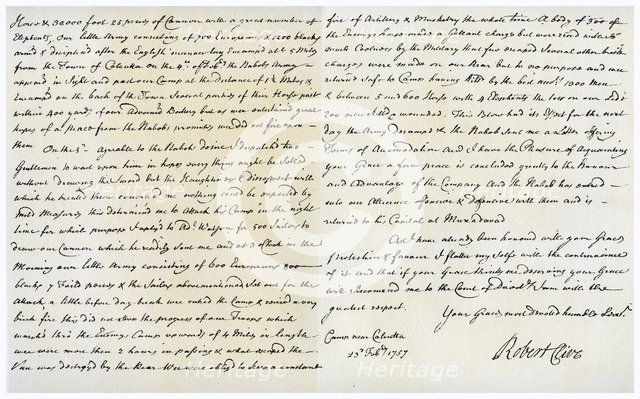 Horse & 38000 foot 25 pieces of Cannon with a great number of
Elephants Our little Army consisting of 700 Europeans & 1200 blacks
arm'd & disciplin'd after the English manner lay Encamp'd at 5 Miles
from the Town of Calcutta on the 4th of Feb the Nabobs Army
appear'd in Sight and past our Camp at the Distance of 1½ Miles &
Encamp'd on the back of the Town Several parties of their Horse past
within 400 yards of our Advanced Battery but as we entertained great
hopes of a Peace from the Nabobs promises we did not fire upon
them
On the 5th agreable to the Nabobs desire I dispatch'd two
Gentlemen to wait upon him in hopes every thing might be Settled
without drawing the Sword but the Haughtiness & disrespect with
which he treated them convinced me nothing could be expected by
mild Measures this determined me to attack his Camp in the night
time for which purpose I apply'd to Adl Watson for 500 Sailors to
draw our Cannon which he readily sent me and at 3 o'Clock in the
Morning our little Army consisting of 600 Europeans 800
blacks 7 Field pieces & the Sailors abovementioned Set out for the
Attack a little before day break we enter'd the Camp & receiv'd a very
brisk fire this did not Stop the progress of our Troops which
march'd thro' the Enemys Camp upwards of 4 Miles in length
wee were more than 2 hours in passing & what escaped the
Van was destroyed by the Rear Wee were obliged to keep a constant
fire of Artillery & Musketry the whole time A body of 300 of
the Enemys horse made a Gallant charge but were received with
so much Coolness by the Military that few escaped Several other brisk
charges were made on our Rear but to no purpose and we
returned Safe to Camp having kill'd by the best accts 1300 Men
& between 5 and 600 Horse with 4 Elephants the loss on our Side
200 men kill'd & wounded. This Blow had its Effect for the next
day the Army decamp'd & the Nabob sent me a Letter offering
Terms of Accomodation And I have the Pleasure of Acquainting
your Grace a firm peace is concluded greatly to the Honour
and Advantage of the Company And the Nabob has entred
into an Alliance offensive & Defensive with them and is
returned to his Capital at Muxadavad
As I have already been honoured with your Graces
protection & favour I flatter my Selfe with the continuance
of it and that if your Grace thinks me deserving your Grace
will Recomend me to the Court of Directors I am with the
greatest respect.
Your Graces most devoted humble Servt
Camp near Calcutta
23d Feby 1757
Robert Clive
Heritage
Heritage